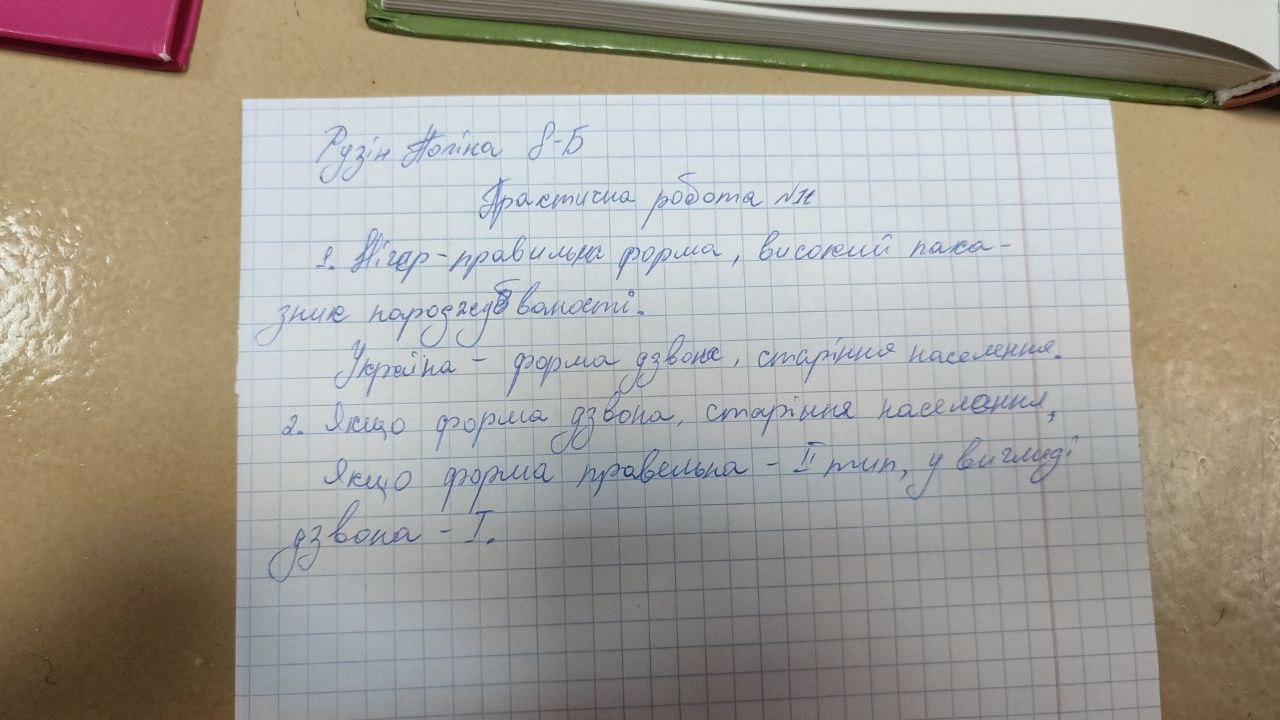 Рузін Поліна 8-Б
Практична робота №11
1. Нігер - правильна форма, високий пака-
зник народжуваності.
Україна - форма дзвона, старіння населення.
2. Якщо форма дзвона, старіння населення,
Якщо форма правельна - II тип, у вигляді
дзвона - I.